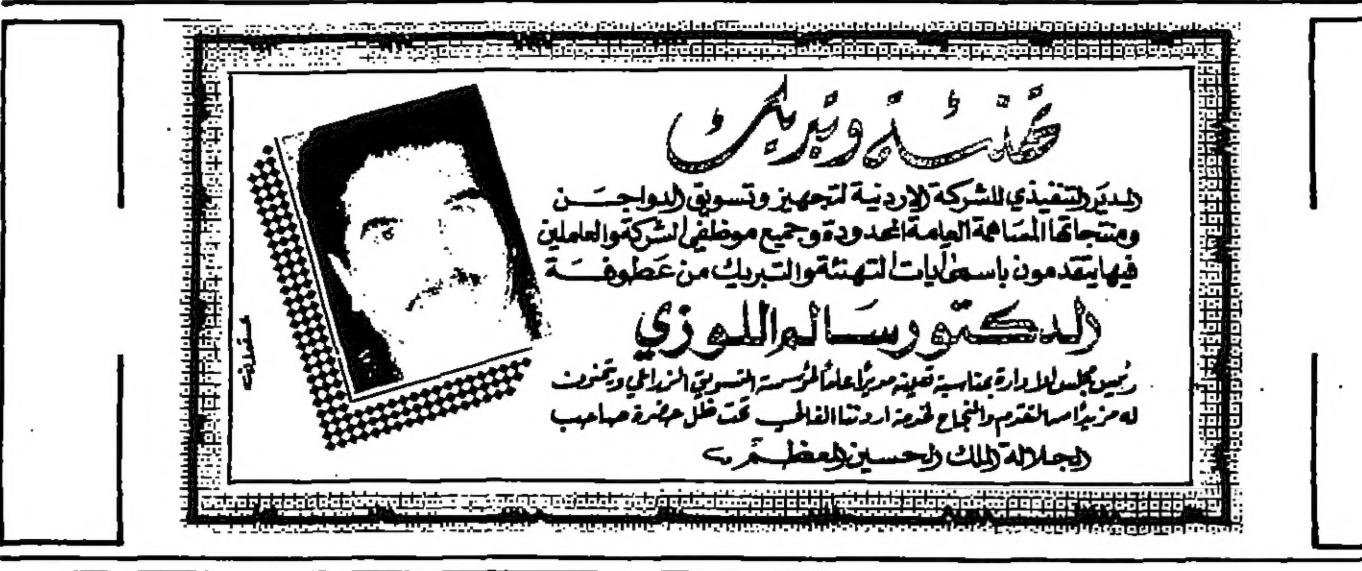 تهنئة وتبريك
المدير التنفيذي للشركة الاردنية لتجهيز وتسويق الدواجن
ومنتجاتها المساهمة العامة المحدودة وجميع موظفي الشركة والعاملين
فيها يتقدمون باسمى آيات التهنئة والتبريك من عطوفة
الدكتور سالم اللوزي
رئيس مجلس الادارة بمناسبة تعيينه مديرًا عامًا لمؤسسة التسويق الزراعي ويتمنون
له مزيدًا من التقدم والنجاح لخدمة اردننا الغالي تحت ظل حضرة صاحب
الجلالة الملك الحسين المعظم